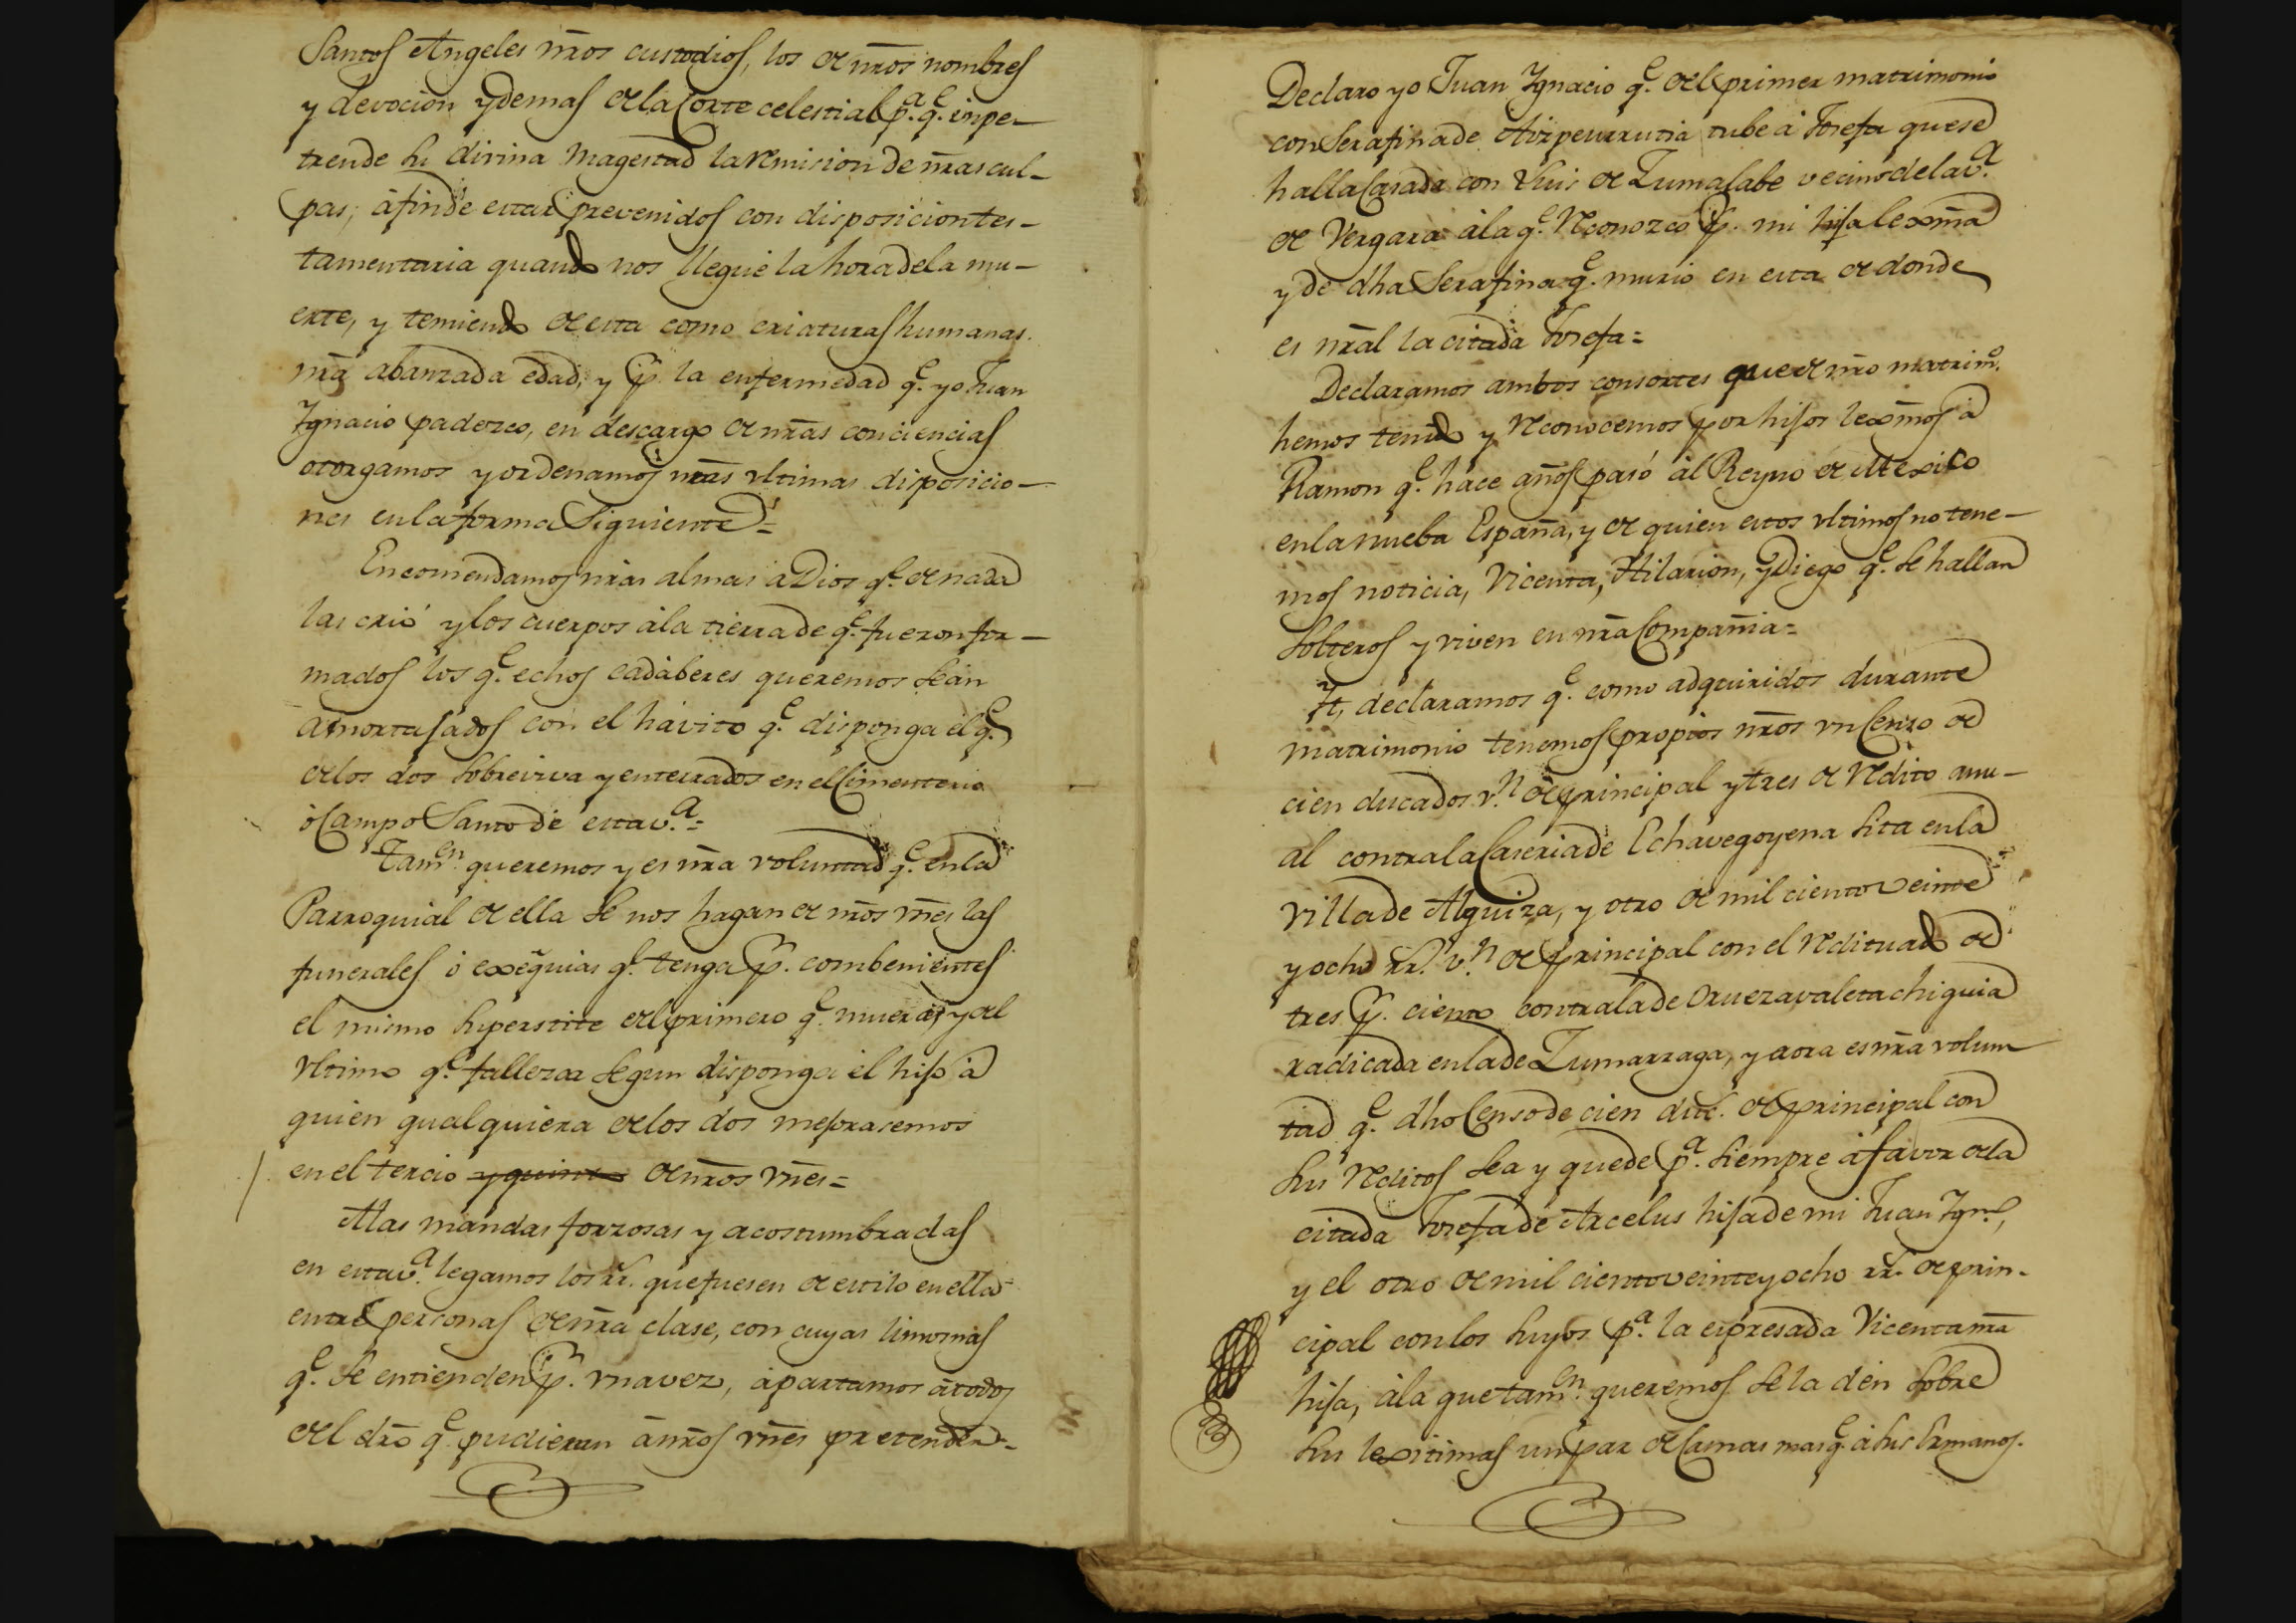 Santos Angeles nr̃os custodios, los de nr̃os nombres
y devocion y demas de la Corte celestial p.ª q.e inpe-
trende su divina Magestad la remision de nr̃as cul-
pas, á fin de estar prevenidos con disposicion tes-
tamentaria quando nos llegue la hora de la mu-
erte, y temiendo de esta como criaturas humanas.
nr̃a abanzada edad, y p.r la enfermedad q.e yo Juan
Ygnacio padezco, en descargo de nr̃as conciencias
otorgamos y ordenamos nr̃as ultimas disposicio-
nes en la forma Siguiente=
Encomendamos nr̃as almas a Dios q.e de nada
las crió y los cuerpos á la tierra de q.e fueron for-
mados los q.e echos cadaberes queremos sean
amortajados con el havito q.e disponga el q.e
de los dos sobreviva y enterrados en el Cimenterio
ó Campo Santo de esta v.ª=
Tam.en queremos y es nr̃a voluntad q.e en la
Parroquial de ella se nos hagan de nr̃os vñes las
funerales ó exequias q.e tenga p.r combenientes
el mismo superstite del primero q.e muera, y del
ultimo q.e fallezca segun disponga el hijo á
quien qualquiera de los dos mejorasemos
en el tercio y quinto de nr̃os vñes=
Alas mandas forzosas y acostumbradas
en esta v.ª legamos los rr.s que fuesen de estilo en ella
entre personas de nr̃a clase, con cuyas limosnas
q.e se entienden p.r una vez, apartamos á todos
del dr̃o q.e pudieran á nr̃os vñes pretender=
Declaro yo Juan Ygnacio q.e del primer matrimonio
con Serafina de Aizpeurrutia tube á Josefa que se
halla Casada con Luis de Zumalabe vecino de la v.ª
de Vergara á la q.e reconozco p.r mi hija lexma
y de dha Serafina q.e murio en esta de donde
es nr̃al la citada Josefa=
Declaramos ambos consortes que de nr̃o matrim.o
hemos tenido y reconocemos por hijos lexmos á
Ramon q.e hace años pasó al Reyno de Mexico
en la nueba España, y de quien estos ultimos no tene-
mos noticia, Vicenta, Hilarion, y Diego q.e se hallan
solteros y viven en nr̃a Compañia=
Yt, declaramos q.e como adquiridos durante
matrimonio tenemos propios nr̃os un Cenzo de
cien ducados v.n de principal y tres de redito anu-
al contra la Caseria de Echavegoyena sita en la
villa de Alquiza, y otro de mil ciento veinte
y ocho rr.s v.n de principal con el redituado de
tres p.r ciento contra la de Oruezavaleta chiquia
radicada en la de Zumarraga, y aora es nr̃a volun
tad q.e dho Censo de cien duc.s de principal con
sus reditos sea y quede p.ª siempre á favor de la
citada Josefa de Arcelus hija de mi Juan Ygn.o,
y el otro de mil ciento veinte y ocho rr.s de prin-
cipal con los suyos p.ª la expresada Vicenta nr̃a
hija, á la que tam.en queremos se la dén sobre
sus lexitimas un par de Camas mas q.e á sus Ermanos.